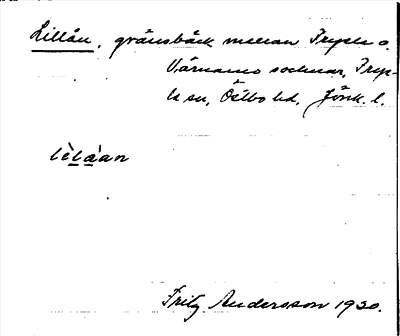 Lillån, gränsbäck mellan Fryele o.
Värnamo socknar, Frye-
le sn, Östbo hd, Jönk. l.
lèlåan
Fritz Andersson 1930.